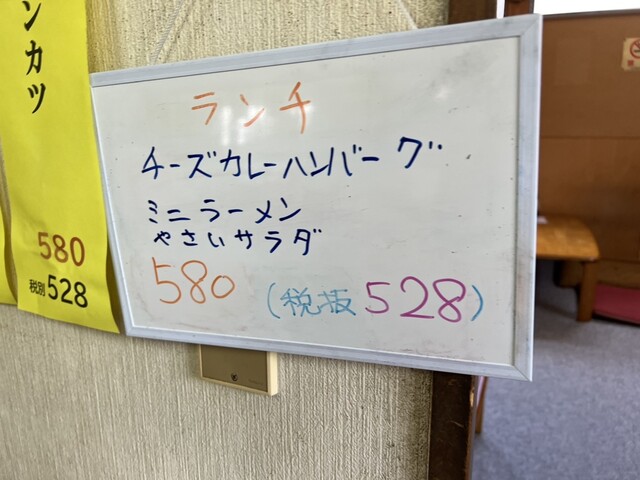 ンカツ
580
税別528
ランチ
チーズカレーハンバーグ
ミニラーメン
やさいサラダ
580
(税抜528)